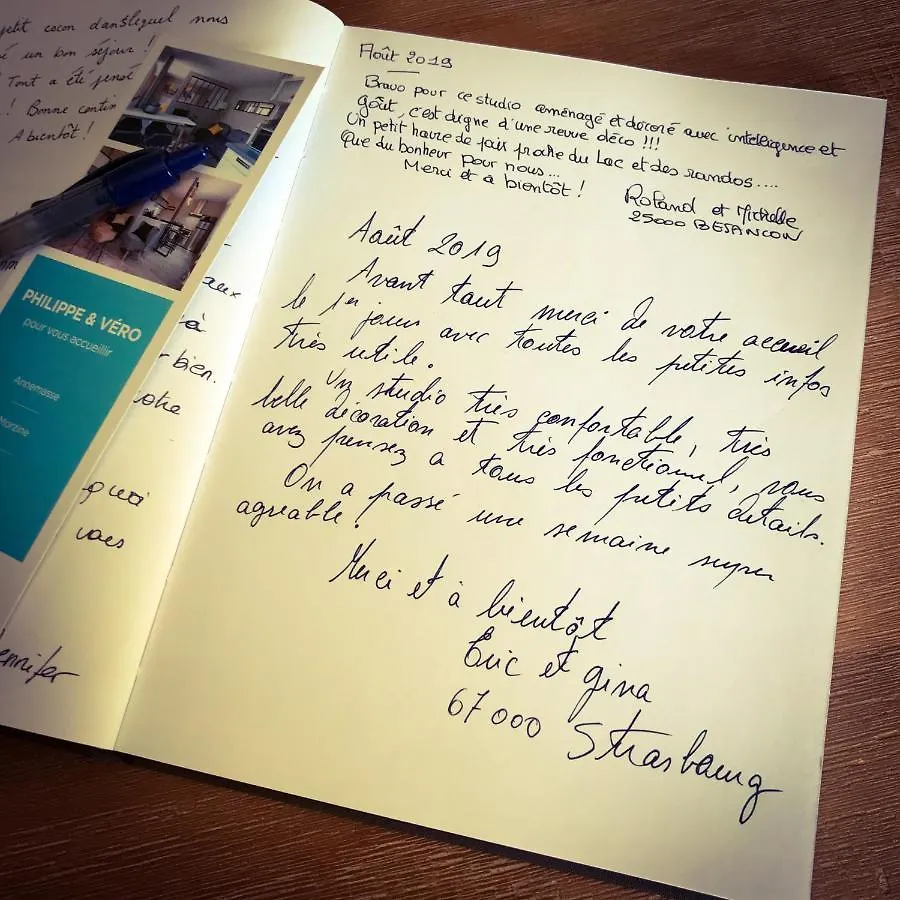 petit cocon dans lequel nous
é un bon séjour !
Tout a été pensé
! Bonne contin
A bientôt !
PHILIPPE & VÉRO
pour vous accueillir
Annemasse
Morzine
aux
à
bien.
votre
quoi
vous
ennifer
Août 2019
Bravo pour ce studio aménagé et décoré avec intelligence et
goût, c'est digne d'une revue déco !!!
Un petit havre de paix proche du Lac et des randos....
Que du bonheur pour nous...
Merci et à bientôt !
Roland et Michelle
25000 BESANCON
Août 2019
Avant tout merci de votre accueil
le 1er jour avec toutes les petites infos
très utile.
Un studio très confortable, très
belle décoration et très fonctionnel, vous
avez pensez a tous les petits détails.
On a passé une semaine super
agréable !
Merci et à bientôt
Eric et gina
67000 Strasbourg